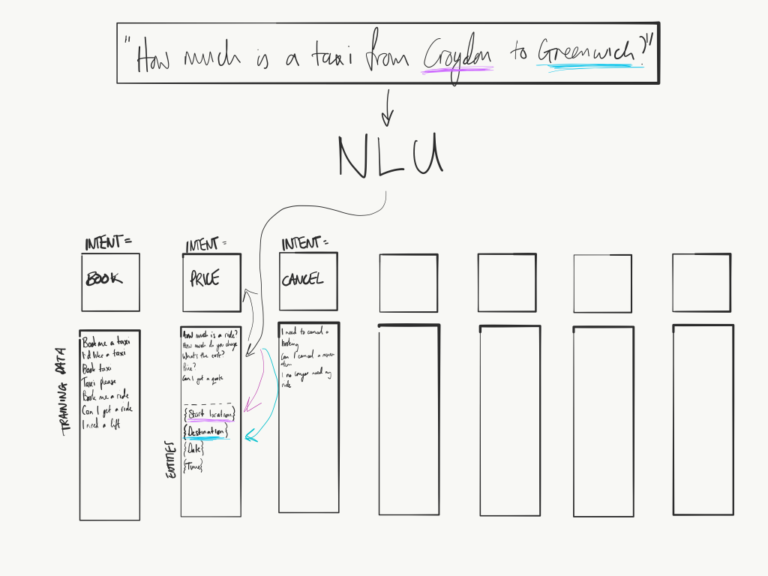 "How much is a taxi from Croydon to Greenwich?"
NLU
INTENT =
BOOK
INTENT =
PRICE
INTENT =
CANCEL
TRAINING DATA
Book me a taxi
I'd like a taxi
Book taxi
Taxi please
Book me a ride
Can I get a ride
I need a lift
How much is a ride?
How much do you charge
What's the cost?
Price?
Can I get a quote
ENTITIES
{Start location}
{Destination}
{Date}
{Time}
I need to cancel a
booking
Can I cancel a
I no longer need my
ride